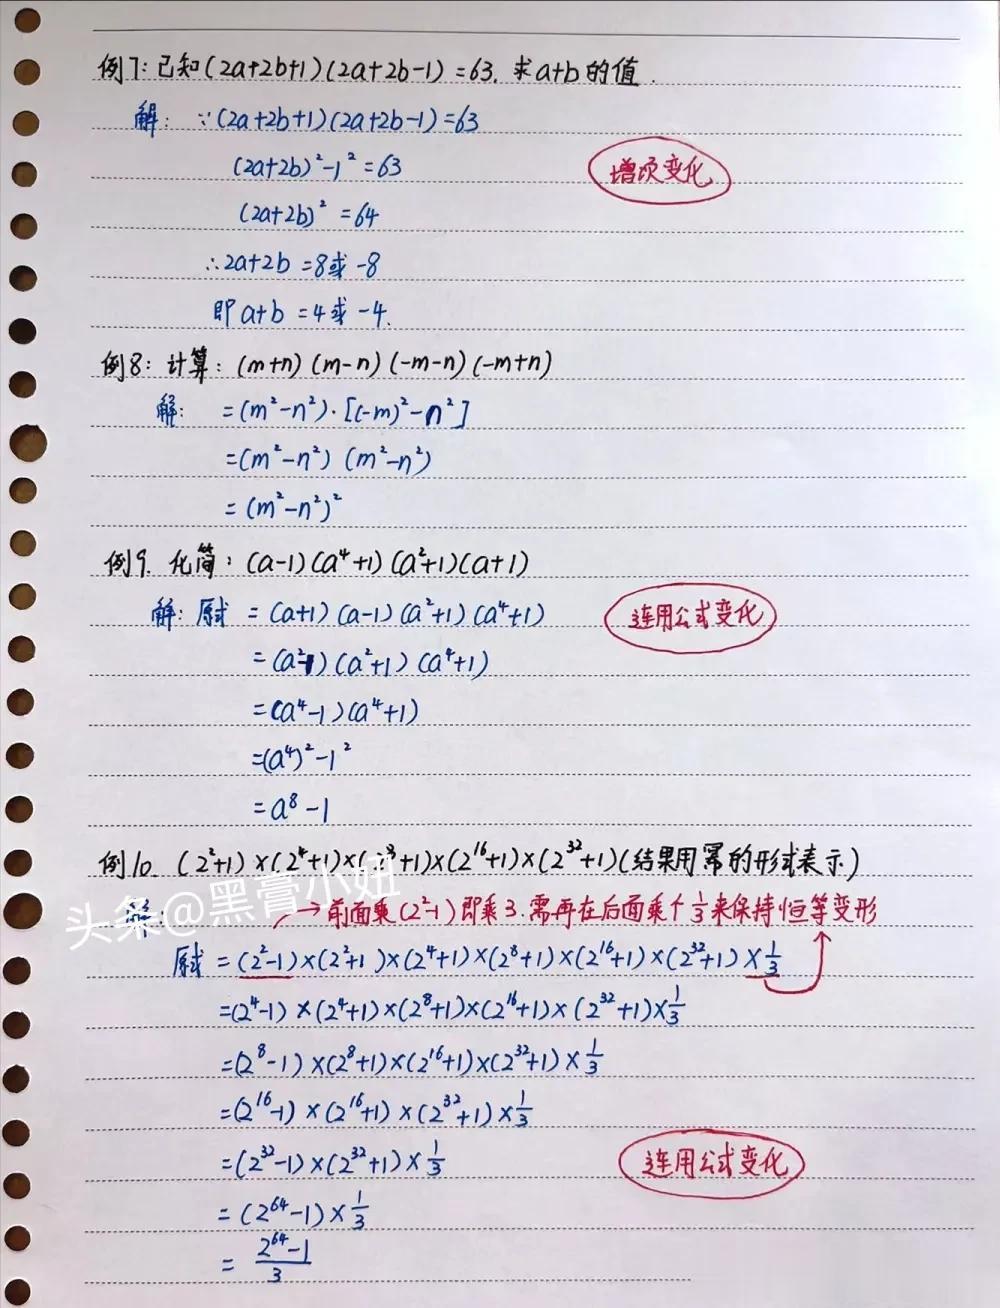 例7:已知(2a+2b+1)(2a+2b-1)=63.求a+b的值.
解: ∵(2a+2b+1)(2a+2b-1)=63
(2a+2b)²-1²=63
增项变化
(2a+2b)²=64
∴2a+2b=8或-8
即a+b=4或-4.
例8:计算:(m+n)(m-n)(-m-n)(-m+n)
解: =(m²-n²)·[(-m)²-n²]
=(m²-n²)(m²-n²)
=(m²-n²)²
例9.化简:(a-1)(a⁴+1)(a²+1)(a+1)
解:原式=(a+1)(a-1)(a²+1)(a⁴+1)
连用公式变化
=(a²-1)(a²+1)(a⁴+1)
=(a⁴-1)(a⁴+1)
=(a⁴)²-1²
=a⁸-1
例10.(2²+1)×(2⁴+1)×(2⁸+1)×(2¹⁶+1)×(2³²+1)(结果用幂的形式表示)
头条@黑膏小妞
解:
→前面乘(2²-1)即乘3.需再在后面乘个1/3来保持恒等变形
原式=(2²-1)×(2²+1)×(2⁴+1)×(2⁸+1)×(2¹⁶+1)×(2³²+1)×1/3
=(2⁴-1)×(2⁴+1)×(2⁸+1)×(2¹⁶+1)×(2³²+1)×1/3
=(2⁸-1)×(2⁸+1)×(2¹⁶+1)×(2³²+1)×1/3
=(2¹⁶-1)×(2¹⁶+1)×(2³²+1)×1/3
=(2³²-1)×(2³²+1)×1/3
连用公式变化
=(2⁶⁴-1)×1/3
=(2⁶⁴-1)/3